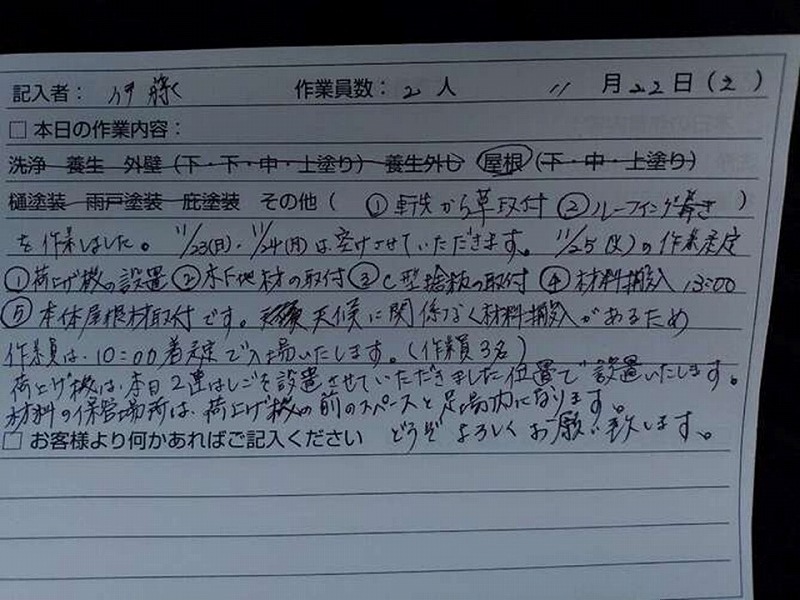 記入者: 伊藤 作業員数: 2 人 11 月 22 日 (土)
□ 本日の作業内容:
洗浄 養生 外壁 (下・下・中・上塗り) 養生外し 屋根 (下・中・上塗り)
樋塗装 雨戸塗装 庇塗装 その他 ( ① 軒先から 取付 ② ルーフィング葺き )
を作業しました。 11/23(日)、11/24(月)は空けさせていただきます。 11/25(火)の作業予定
① 荷上げ機の設置 ② 木下地材の取付 ③ C型捨板の取付 ④ 材料搬入 13:00
⑤ 本体屋根材取付です。 天候に関係なく材料搬入があるため
作業員は、10:00着予定で入場いたします。(作業員3名)
荷上げ機は、本日2連はしごを設置させていただきました位置で設置いたします。
材料の保管場所は、荷上げ機の前のスペースと足場内になります。
□ お客様より何かあればご記入ください どうぞよろしくお願い致します。